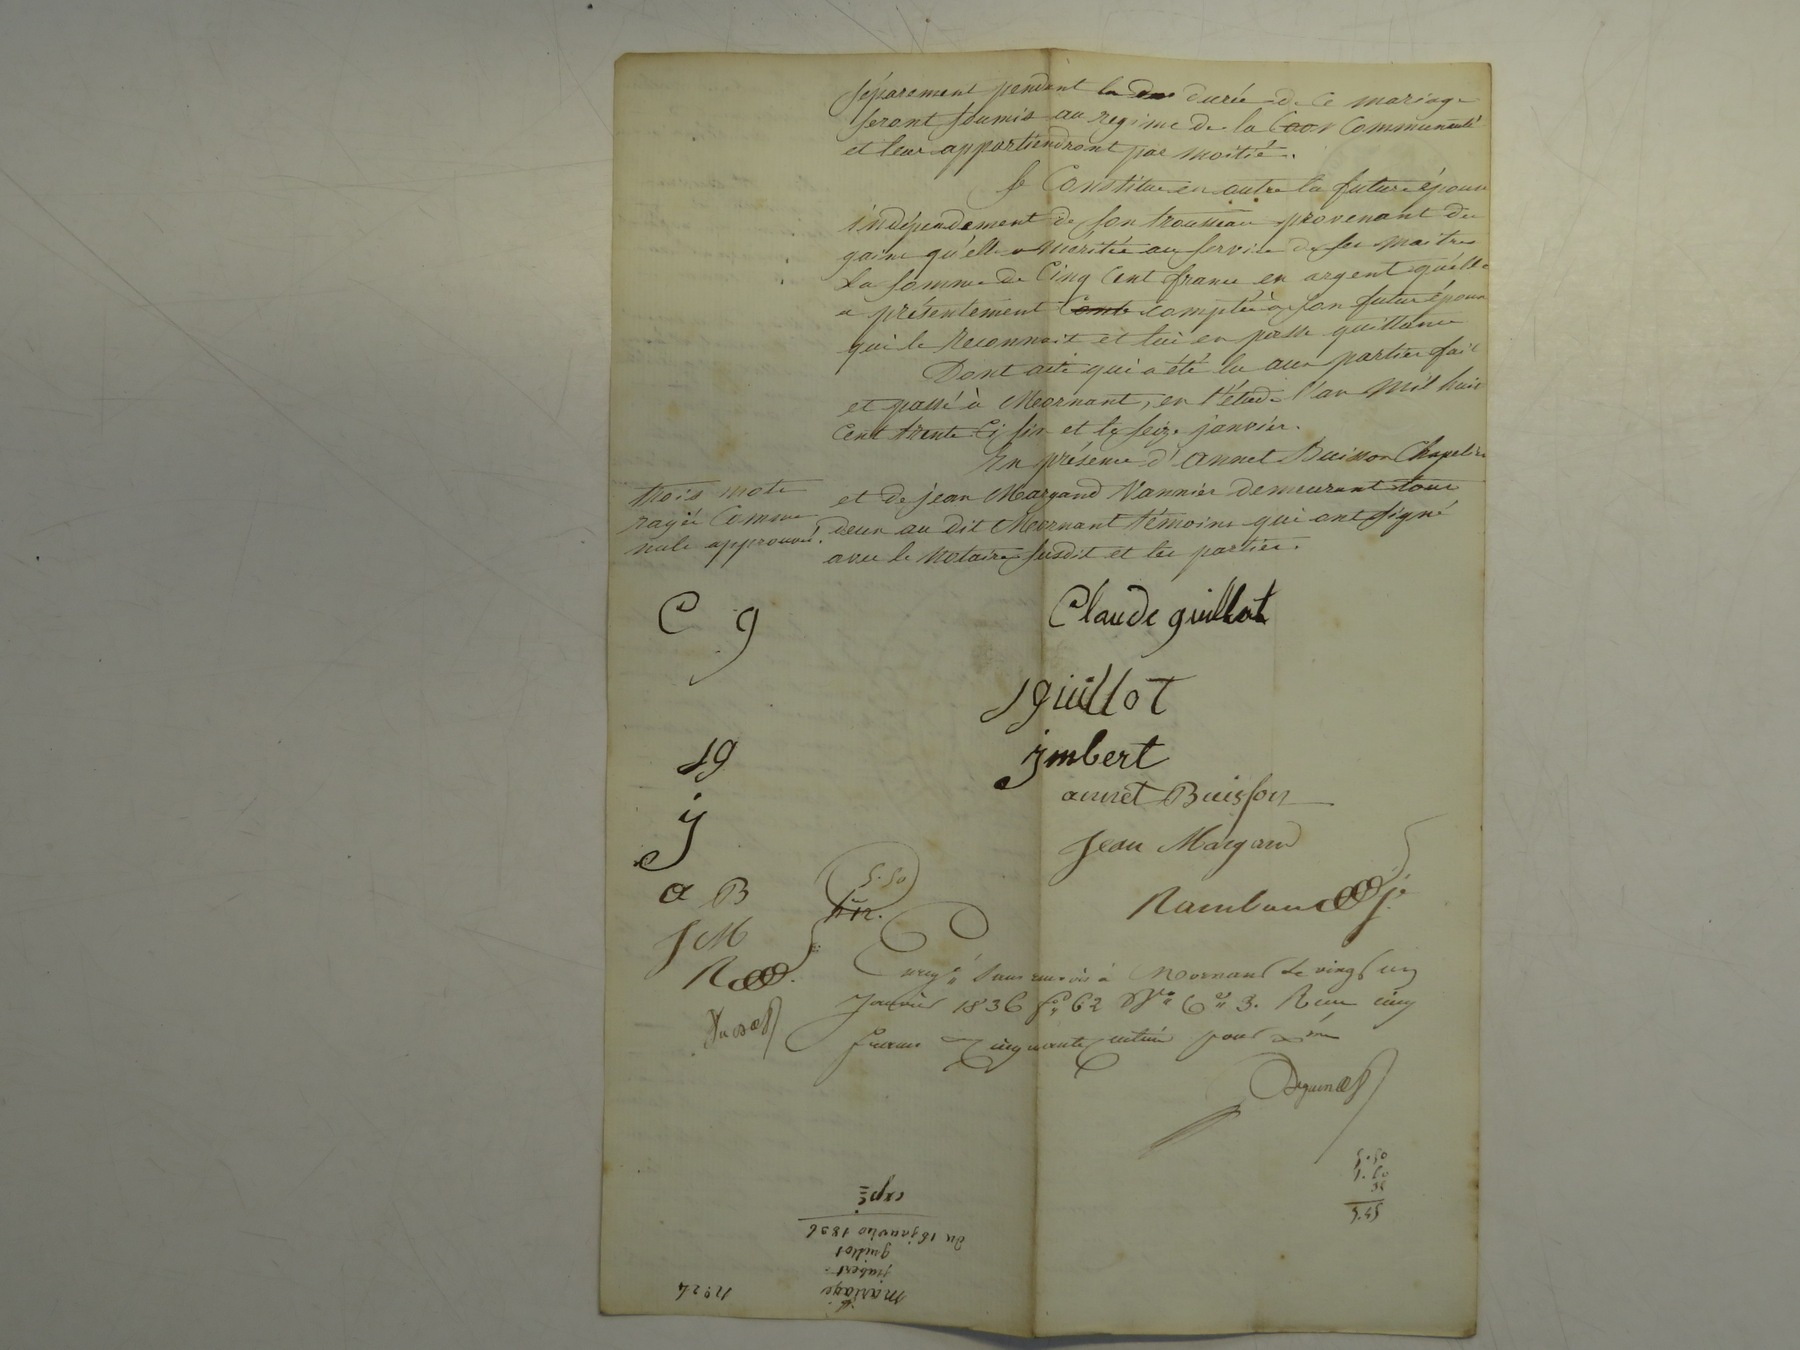 séparement pendent la durée de ce mariage
seront soumis au regime de la Communauté
et leur appartiendront par moitié.
Se Constitue en outre la future épouse
indépendement de son trousseau provenant du
gain qu'elle a méritée au service de ses maitres
La somme de Cinq Cent francs en argent qu'elle
a présentement comptée à son futur époux
qui le reconnait et lui en passe quittance
Dont acte qui a été lu aux parties fait
et passé à Mornant, en l'étude l'an mil huit
Cent trente six et le seize janvier.
En présence d'annet Buisson Chapelier
et de jean Margand Vannier demeurant tous
deux au dit Mornant témoins qui ont signé
avec le notaire susdit et les parties.
trois mots
rayés Comme
nuls approuvés.
C g
Claude guillot
J guillot
J g
jmbert
j
annet Buisson
Jean Margand
a B
5.50
J M
R
Enreg.é sans renvois à Mornant le vingt un
Janvier 1836 f.o 62 V.o C.es 3. Reçu cinq
francs Cinquante centimes pour
5.50
5.45
N.o 24
mariage
jmbert
guillot
du 16 janvier 1836
exp.é